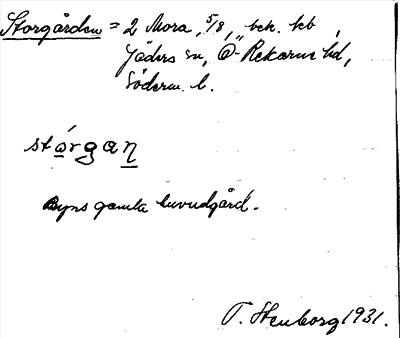 Storgården = 2 Mora, 5/8, bek. kb,
Jäders sn, Ö-Rekarne hd,
Söderm. l.
stórgan
Byns gamla huvudgård.
T. Stenborg 1931.